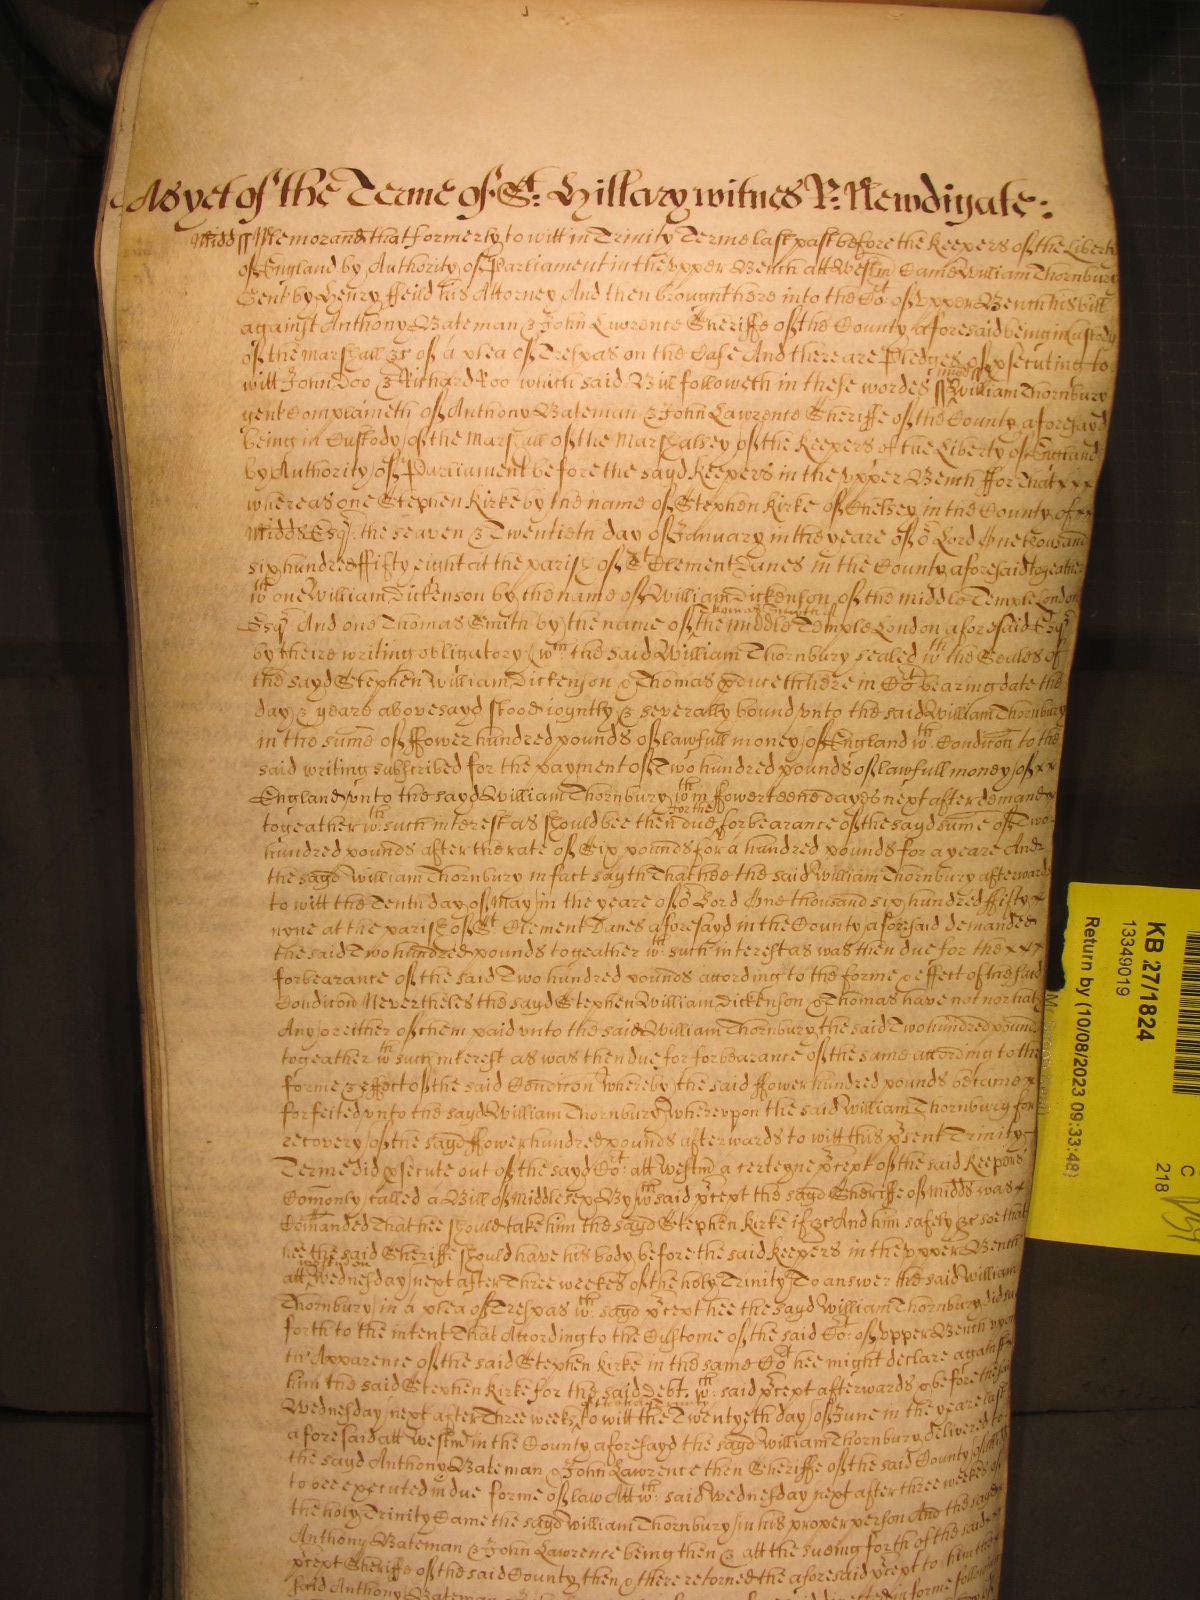 As yet of the Terme of St: Hillary witnes R: Newdigate:
Midd ss Memorand that formerly to witt in Trinity Terme last past before the Keepers of the Liberty
of England by Authority of Parliament in the upper Bench att Westm Came William Thornbury
Gent by Henry ffeild his Attorney And then brought here into the Cot of upper Bench his bill
against Anthony Bateman & John Lawrence Sheriffe of the County aforesaid being in custody
of the marshall &c of a plea of Trespas on the Case And there are Pledges of psecuting to
witt John Doo & Richard Roo which said Bill followeth in these wordes Midd ss William Thornbury
gent Complaineth of Anthony Bateman & John Lawrence Sheriffe of the County aforesayd
being in Custody of the Marshall of the Marshallsey of the Keepers of the Liberty of England
by Authority of Parliament before the sayd Keepers in the upper Bench ffor That xxx
whereas one Stephen Kirke by the name of Stephen Kirke of Chelsey in the County of
Midds Esqr the seaven & Twentieth day of January in the yeare of or Lord One thousand
six hundred ffifty eight at the parish of St Clement Danes in the County aforesaid togeather
wth one William Dickenson by the name of William Dickenson of the middle Temple London
Esqr And one Thomas Smith by the name of Thomas Smith of the middle Temple London aforesaid Esqr
by theire writing obligatory (wch the said William Thornbury sealed wth the Seales of
the sayd Stephen William Dickenson & Thomas pduceth here in Cot bearing date the
day & yeare abovesayd stood ioyntly & severally bound unto the said William Thornbury
in the sume of ffower hundred pounds of lawfull money of England wth Condicon to the
said writing subscribed for the payment of Two hundred pounds of lawfull money of xx
England unto the sayd William Thornbury wthin ffowerteene dayes next after demand
togeather wth such interest as should bee then due for the forbearance of the sayd sume of Two
hundred pounds after the rate of Six pounds for a hundred pounds for a yeare And
the sayd William Thornbury in fact sayth That hee the said William Thornbury afterwards
to witt the Tenth day of May in the yeare of or Lord One thousand six hundred ffifty
nyne at the parish of St Clement Danes aforesayd in the County aforesaid demanded
the said Two hundred pounds togeather wth such interest as was then due for the xxx
forbearance of the said Two hundred pounds according to the forme & effect of the said
Condicon Nevertheles the sayd Stephen William Dickenson & Thomas have not nor hath
Any or either of them paid unto the said William Thornbury the said Two hundred pounds
togeather wth such interest as was then due for forbearance of the same according to the
forme & effect of the said Condicon whereby the said ffower hundred pounds became
forfeited unto the sayd William Thornbury whereupon the said William Thornbury for
recovery of the sayd ffower hundred pounds afterwards to witt this psent Trinity
Terme did psecute out of the sayd Cot att Westm a certeyne pcept of the said Keepers
Comonly called a Bill of Middlesex By wch said pcept the sayd Sheriffe of Midds was
Comanded That hee should take him the sayd Stephen Kirke if &c And him safely &c soe that
hee the said Sheriffe should have his body before the said Keepers in the upper Bench
att Westm on Wednesday next after Three weekes of the holy Trinity To answer the said William
Thornbury in a plea of Trespas wch sayd pcept hee the sayd William Thornbury did sue
forth to the intent That According to the Custome of the said Cot of upper Bench upon
the Apparence of the said Stephen Kirke in the same Cot hee might declare against
him the said Stephen Kirke for the said Debt. wch said pcept afterwards & before the said
Wednesday next after Three weekes of the holy Trinity to witt the Twentyeth day of June in the yeare last
aforesaid att Westm in the County aforesayd the sayd William Thornbury delivered to
the sayd Anthony Bateman & John Lawrence then Sheriffe of the said County of Midd
to bee executed in due forme of law Att wch said Wednesday next after three weekes of
the holy Trinity Came the sayd William Thornbury in his proper person And the sayd
Anthony Bateman & John Lawrence being then & att the sueing forth of the said
pcept Sheriffe of the said County then & there retorned the aforesaid pcept to him the
said Anthony Bateman in forme follow
KB 27/1824
13349019
Return by (10/08/2023 09:33:48)
C
218